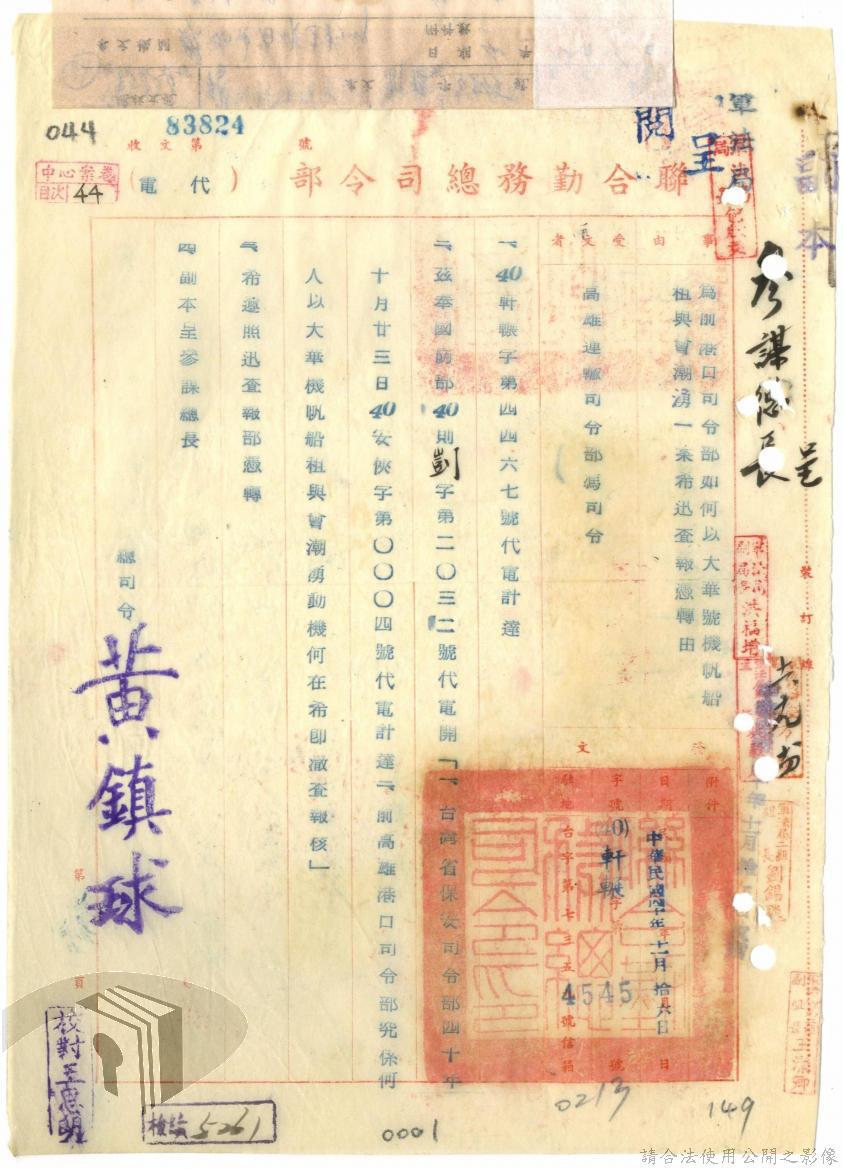 044
83824
收文第 號
聯合勤務總司令部(代電)
中心案卷
目次 44
軍法局
呈
閱
副本
參謀總長
呈
裝訂線
事由
為前港口司令部如何以大華號機帆船
租與曾潮湧一案希迅查報憑轉由
受文者
高雄運輸司令部馮司令
附件
日期 中華民國四十年十一月拾六日
字號 (40)軒輾字第4545號
駐地 台字第七三五號信箱
一、40軒輾字第四四六七號代電計達
二、茲奉國防部40則剴字第二〇三二號代電開「一、台灣省保安司令部四十年
十月廿三日40安俠字第〇〇〇四號代電計達二、前高雄港口司令部究係何
人以大華機帆船租與曾潮湧動機何在希即澈查報核」
三、希遵照迅查報部憑轉
四、副本呈參謀總長
總司令
黃鎮球
第 頁
校對王恩明
檢鈔 5261
0001
0213
149
請合法使用公開之影像